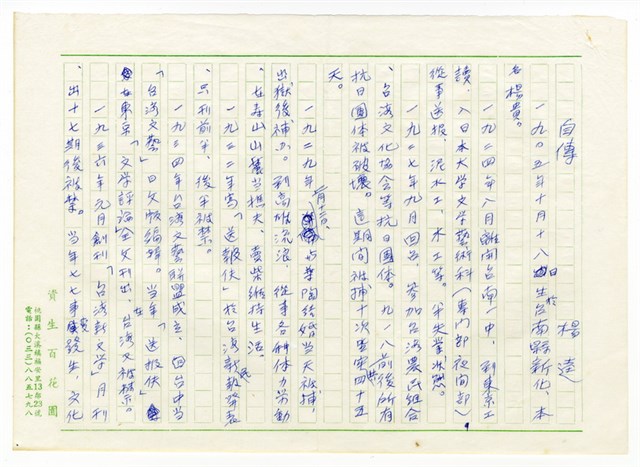 自傳　　楊逵
一九〇五年十月十八日生於台南縣新化、本
名楊貴。
一九二四年八月離開台南一中、到東京工
讀、入日本大学文学藝術科（專門部夜間部）、
從事送报、泥水工、木工等。半失業狀態。
一九二七年九月回台、參加台湾農民組合
、台湾文化協会等抗日團体。九一八前後所有
抗日團体被破壞。這期间被捕十次共牢四十五
天。
一九二九年二月十二日、与葉陶结婚当天被捕，
出獄後補办。到高雄流浪、從事各种体力劳動
、在寿山山麓当樵夫、賣柴維持生活。
一九三二年寫「送报伕」於台湾新民报發表
、只刊前半、後半被禁。
一九三四年台湾文藝聯盟成立、回台中当
「台湾文藝」日文版編輯。当年「送报伕」
在東京「文学評論」全文刊出、在台湾又被禁。
一九三六年元月創刊「台湾新文学」月刊
、出十七期後被禁。当年七七事变發生，文化
資生百花園
桃園縣大溪鎮福安里13鄰23號
電話：(〇三三)八八五七九八